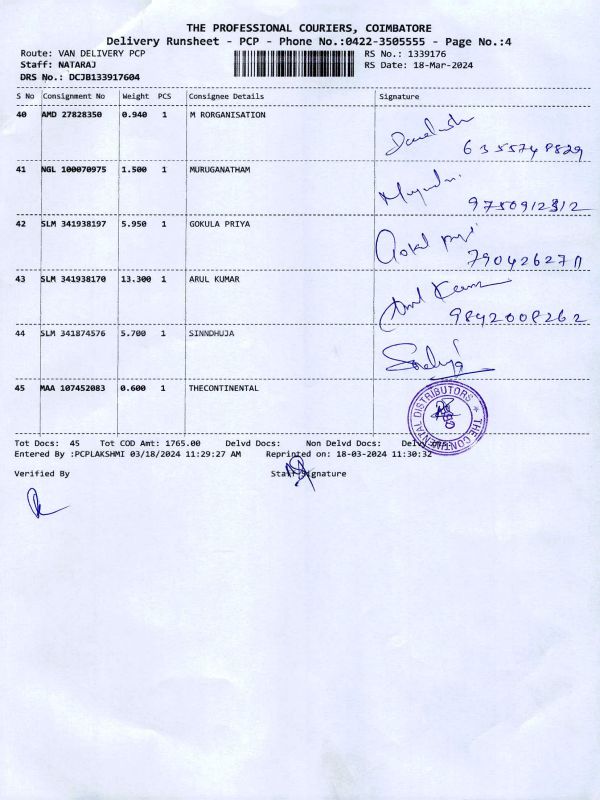 THE PROFESSIONAL COURIERS, COIMBATORE
Delivery Runsheet - PCP - Phone No.:0422-3505555 - Page No.:4
Route: VAN DELIVERY PCP RS No.: 1339176
Staff: NATARAJ RS Date: 18-Mar-2024
DRS No.: DCJB133917604
S No Consignment No Weight PCS Consignee Details Signature
40 AMD 27828350 0.940 1 M RORGANISATION
41 NGL 100070975 1.500 1 MURUGANATHAM
9750912312
42 SLM 341938197 5.950 1 GOKULA PRIYA
Gokul priya
43 SLM 341938170 13.300 1 ARUL KUMAR
Arul Kumar
9842008262
44 SLM 341874576 5.700 1 SINNDHUJA
45 MAA 107452083 0.600 1 THECONTINENTAL
THE CONTINENTAL DISTRIBUTORS
Tot Docs: 45 Tot COD Amt: 1765.00 Delvd Docs: Non Delvd Docs:
Entered By :PCPLAKSHMI 03/18/2024 11:29:27 AM Reprinted on: 18-03-2024 11:30:32
Verified By Staff Signature